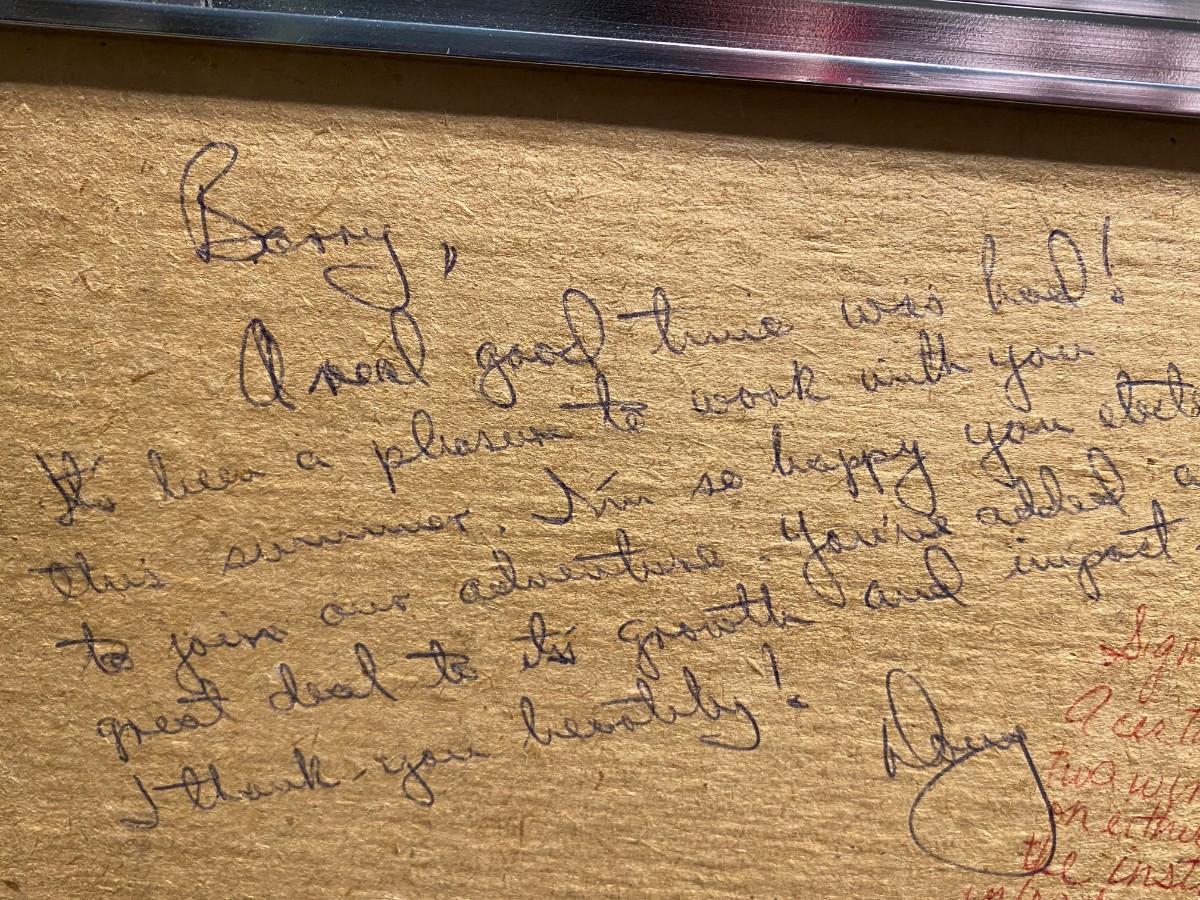 Barry,
A real good time was had!
It's been a pleasure to work with you
this summer. I'm so happy you
to join our adventure. You've added a
great deal to its growth and impact
I thank-you heartily!
Doug
Sign
A cert
two
on either
the inst